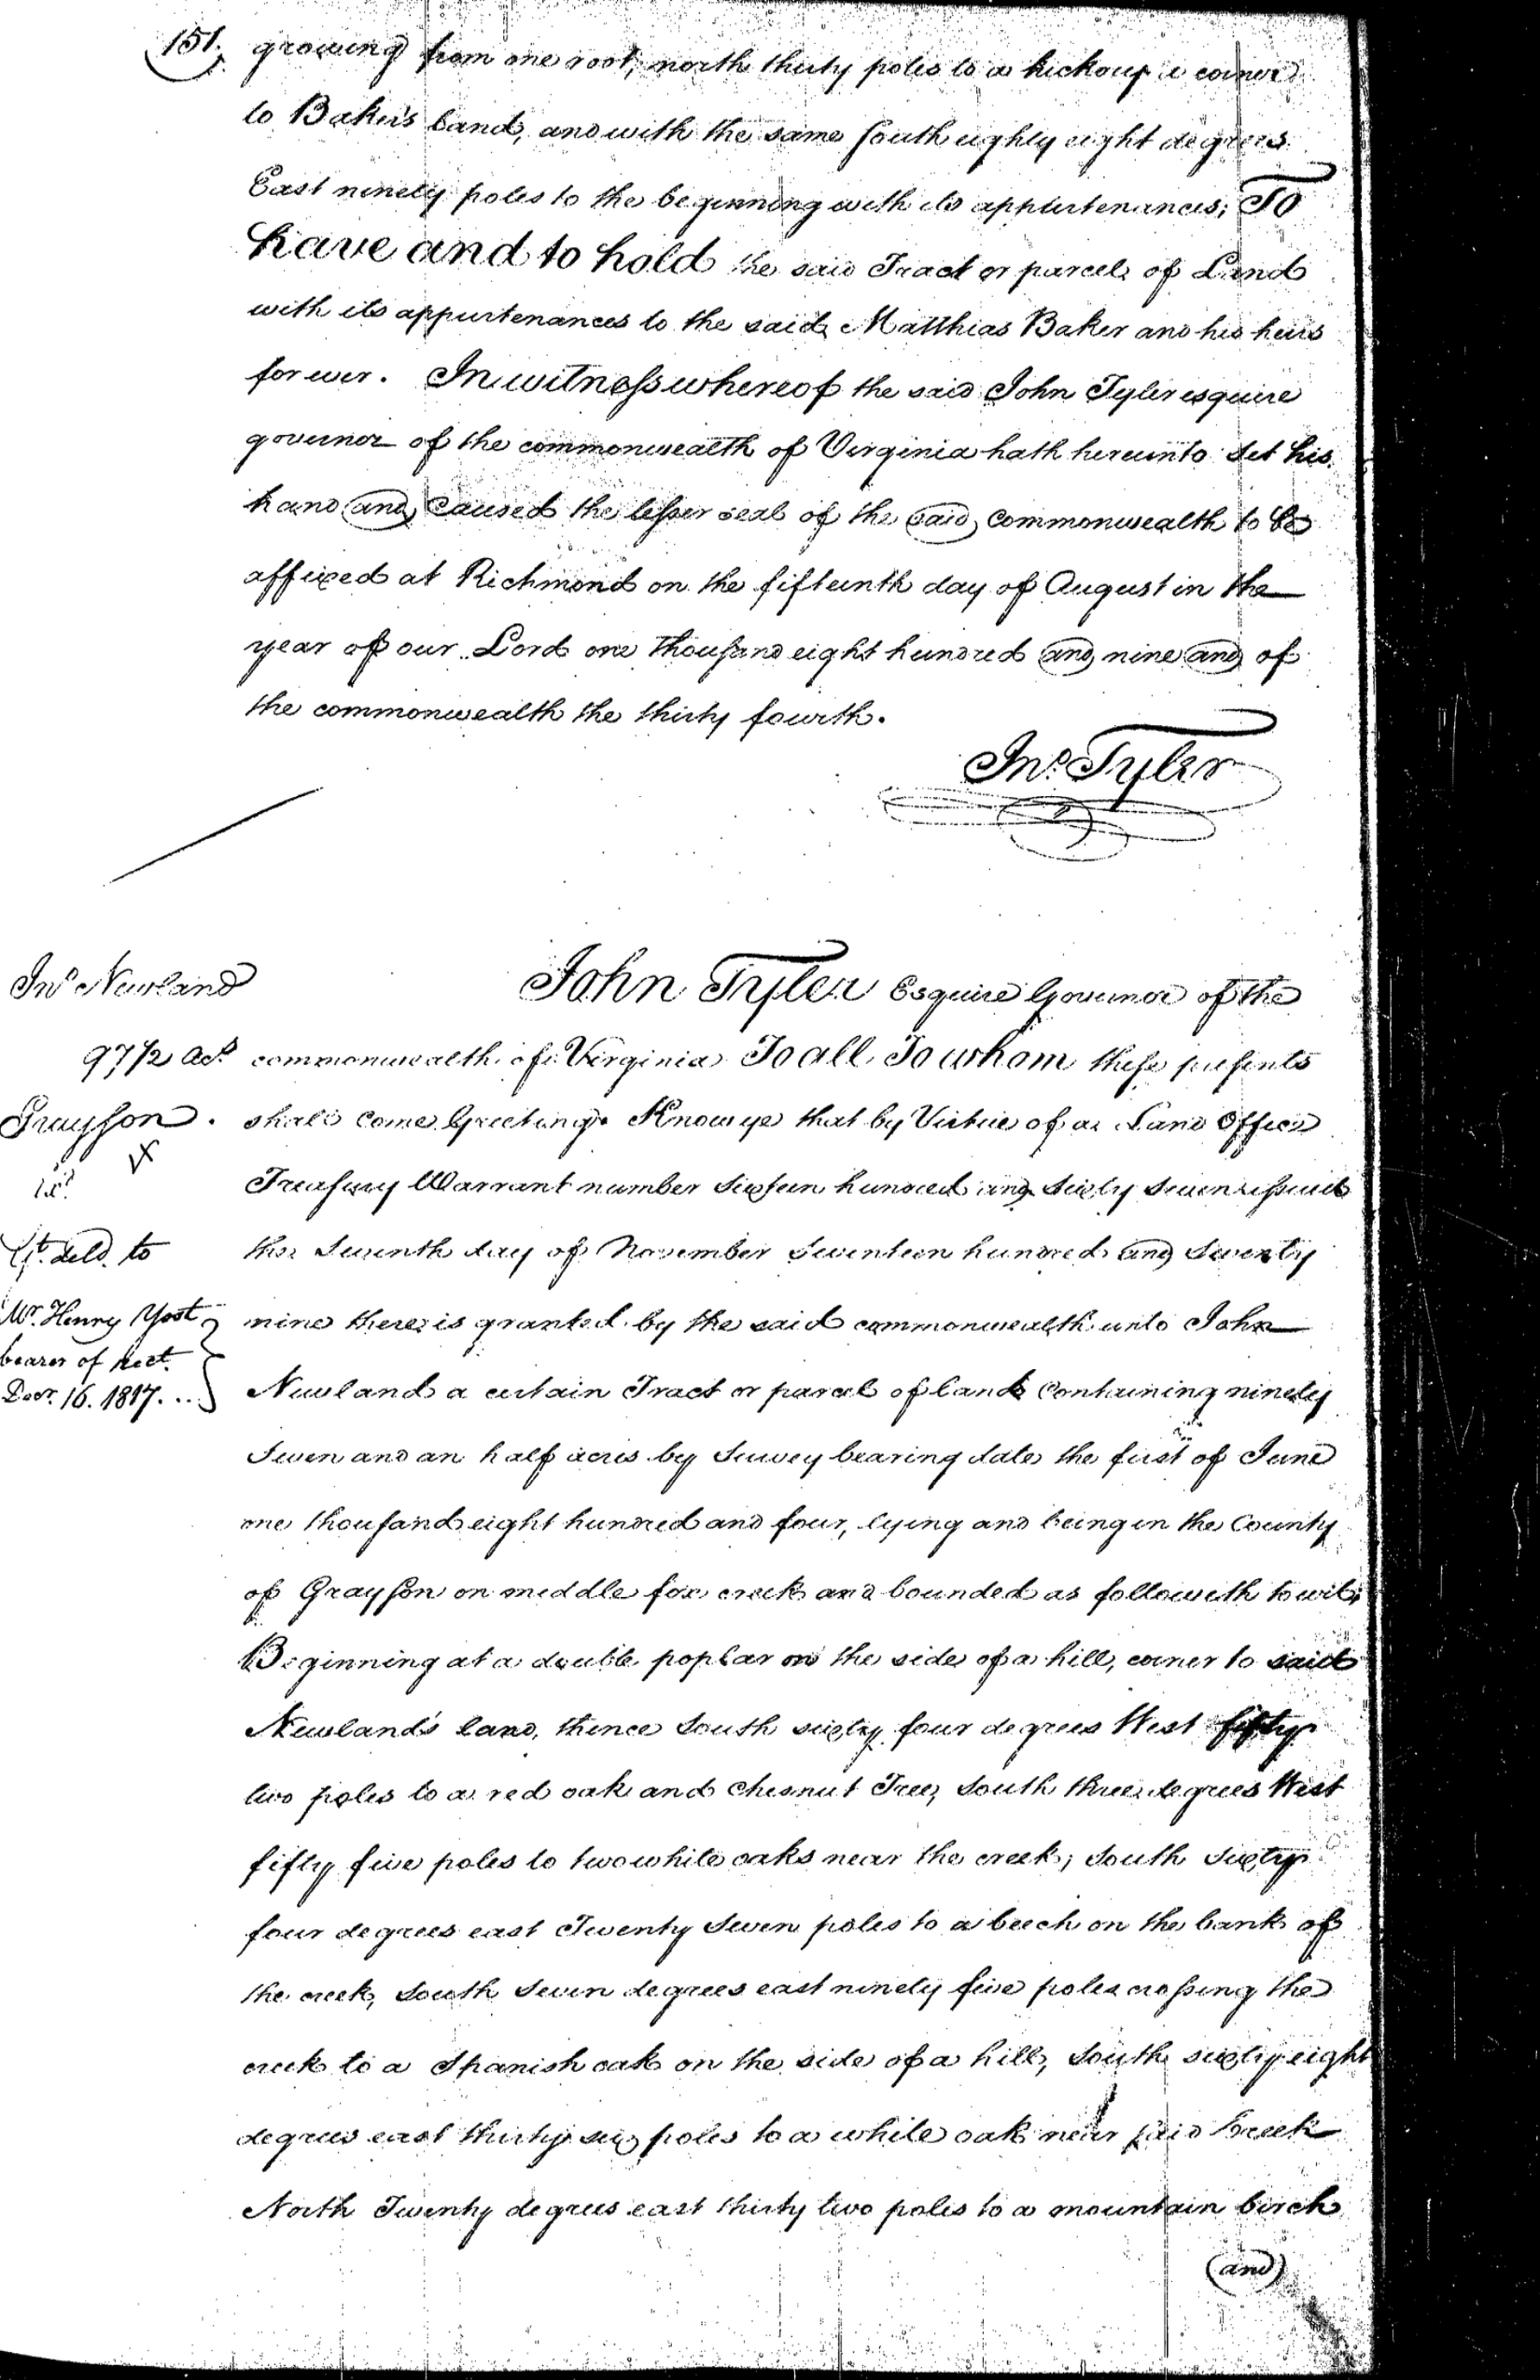 151.
growing from one root, north thirty poles to a hickory a corner
to Baker's land, and with the same south eighty eight degrees
East ninety poles to the beginning with its appurtenances; To
have and to hold the said Tract or parcel of Land
with its appurtenances to the said Matthias Baker and his heirs
forever. In witness whereof the said John Tyler esquire
governor of the commonwealth of Virginia hath hereunto set his
hand and caused the lesser seal of the said commonwealth to be
affixed at Richmond on the fifteenth day of August in the
year of our Lord one thousand eight hundred and nine and of
the commonwealth the thirty fourth.
Jno. Tyler
Jno. Newland
97 1/2 Acs.
Grayson.
Ex.d
Gt. deld. to
Mr. Henry Yost
bearer of rect.
Decr. 16. 1817...
John Tyler Esquire Governor of the
commonwealth of Virginia To all To whom these presents
shall come Greeting. Know ye that by Virtue of a Land Office
Treasury Warrant number sixteen hundred and sixty seven issued
the Seventh day of November Seventeen hundred and Seventy
nine there is granted by the said commonwealth unto John
Newland a certain Tract or parcel of land Containing ninety
Seven and an half acres by Survey bearing date the first of June
one thousand eight hundred and four, lying and being in the County
of Grayson on middle fox creek and bounded as followeth towit,
Beginning at a double poplar on the side of a hill, corner to said
Newland's land, thence South sixty four degrees West fifty
two poles to a red oak and Chesnut Tree, South three degrees West
fifty five poles to two white oaks near the creek; South Sixty
four degrees east Twenty Seven poles to a beech on the bank of
the creek, South Seven degrees east ninety five poles crossing the
creek to a Spanish oak on the side of a hill, South sixty eight
degrees east thirty six poles to a white oak near said Creek
North Twenty degrees east thirty two poles to a mountain birch
(and)